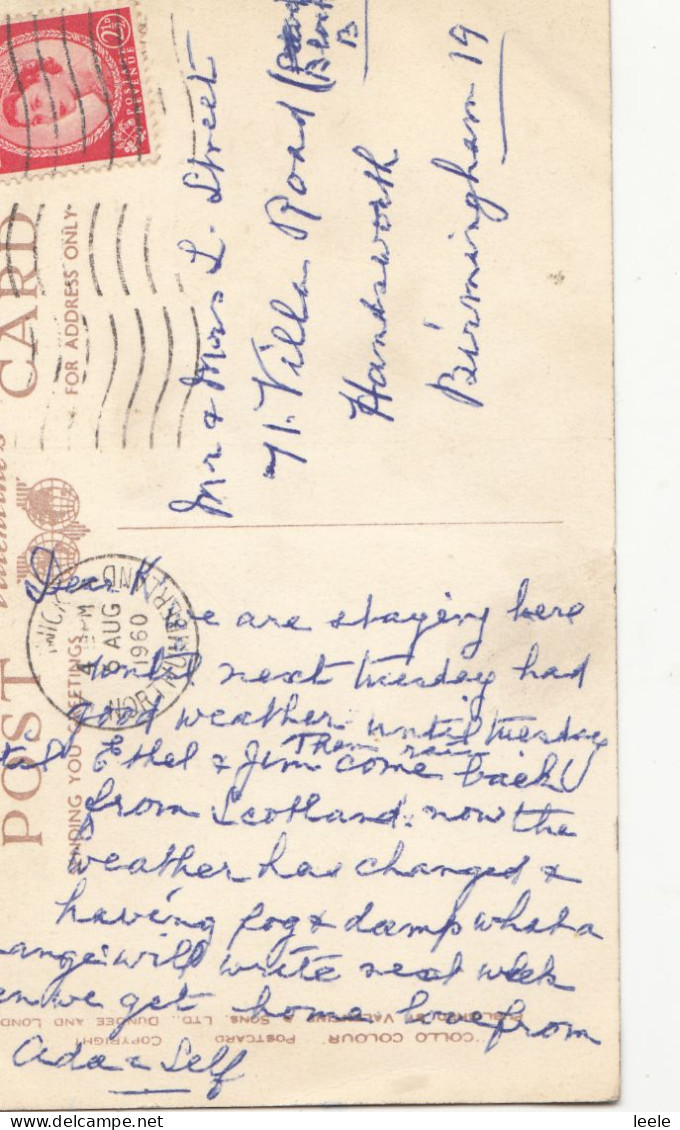 POSTAGE
REVENUE
2½D
POST CARD
FOR ADDRESS ONLY
Valentine's
SENDING YOU GREETINGS
Mr & Mrs L. Street
71. Villa Road (
Block
B
Handsworth
Birmingham 19
NORTHUMBERLAND
6 AUG
1960
Dear K
we are staying here
until next tuesday had
good weather until tuesday
Then rain
Ethel & Jim come back
from Scotland. now the
weather has changed &
having fog & damp what a
will write next week
we get home love from
Ada & Self
"COLLO COLOUR" POSTCARD COPYRIGHT
PUBLISHED BY VALENTINE & SONS, LTD., DUNDEE AND LOND
delcampe.net
leele